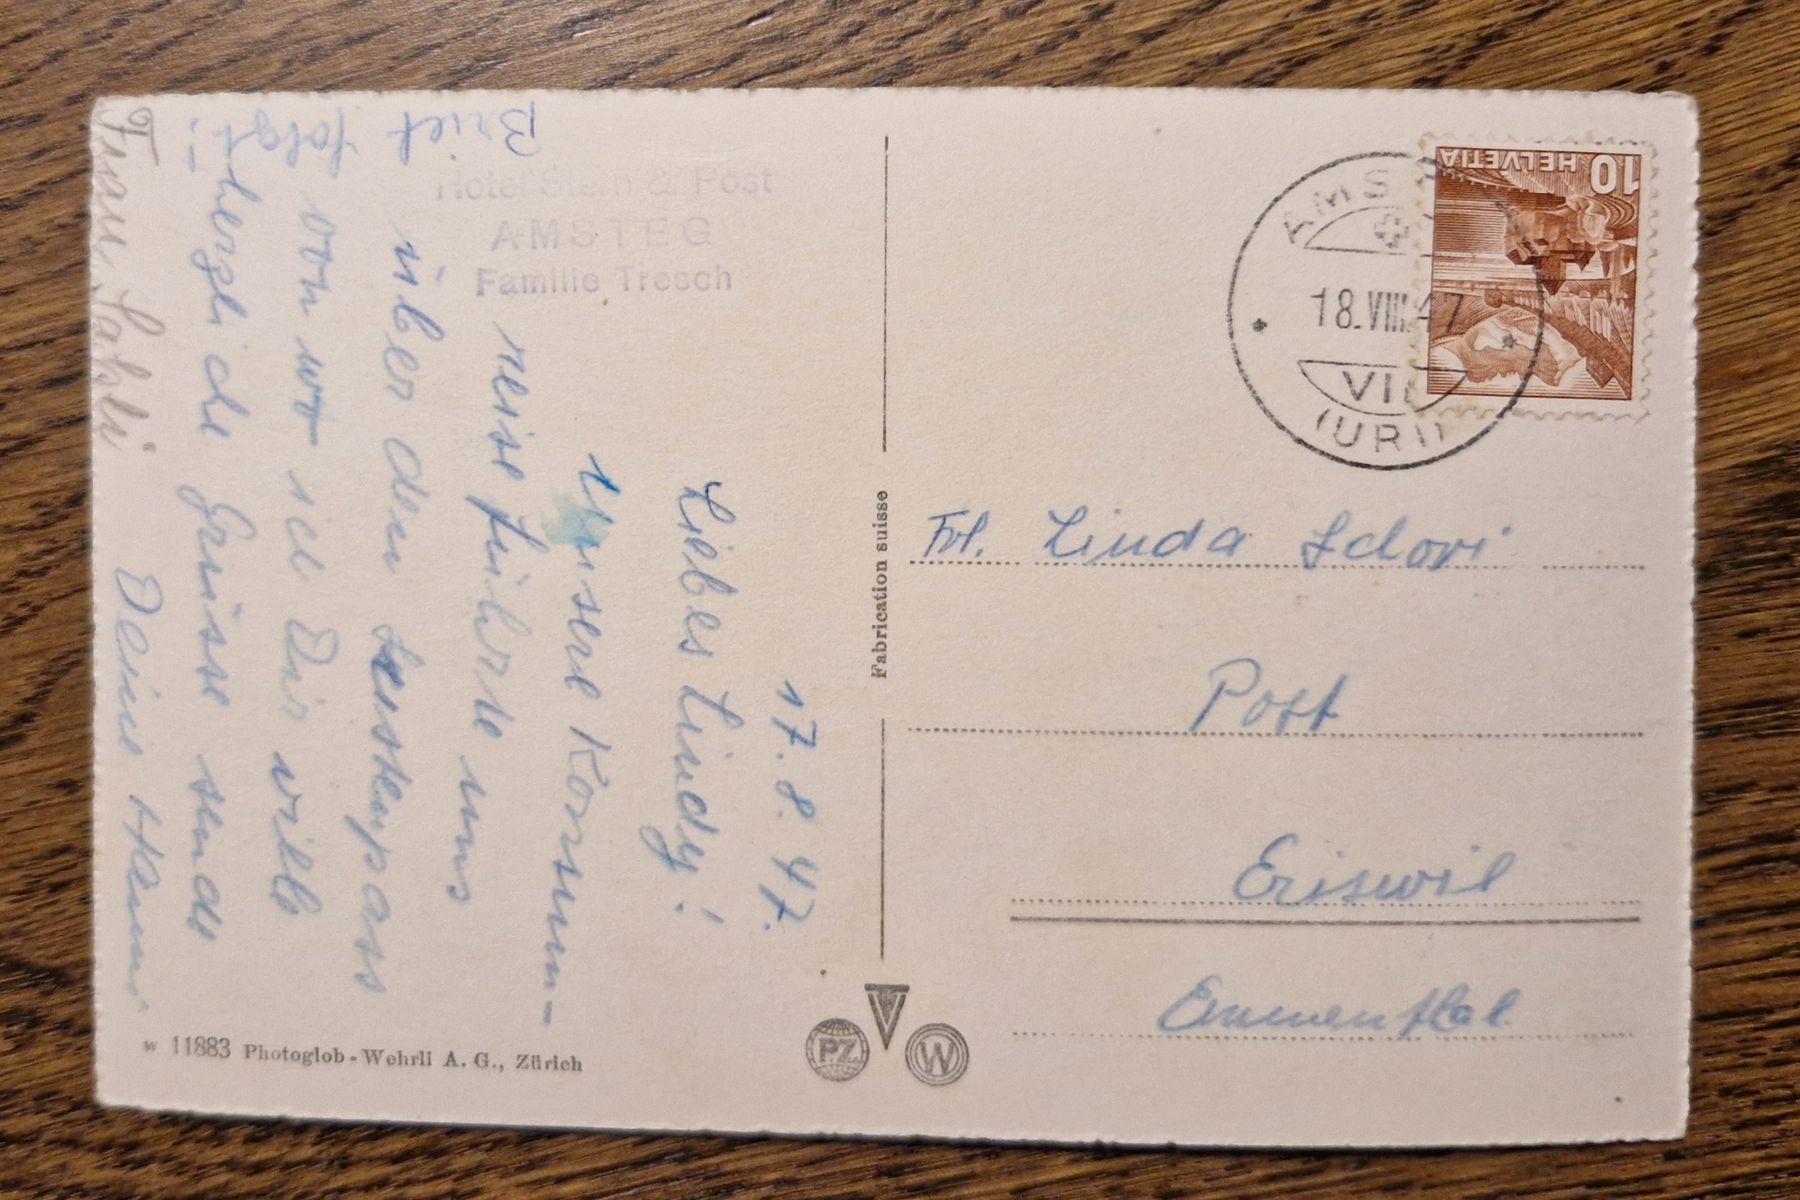 17. 8. 47.
Liebes Lindy!
Unsere Konsum-
reise führte uns
über den Sustenpass
von wo ich Dir viele
herzliche Grüsse sende
Deine Hanni
Brief
folgt!
Frau
Hotel Stern & Post
AMSTEG
Familie Tresch
Fabrication suisse
HELVETIA 10
18.VIII.47
(URI)
Frl. Linda
Post
Eriswil
Emmenthal.
W 11883 Photoglob-Wehrli A. G., Zürich
PZ
W